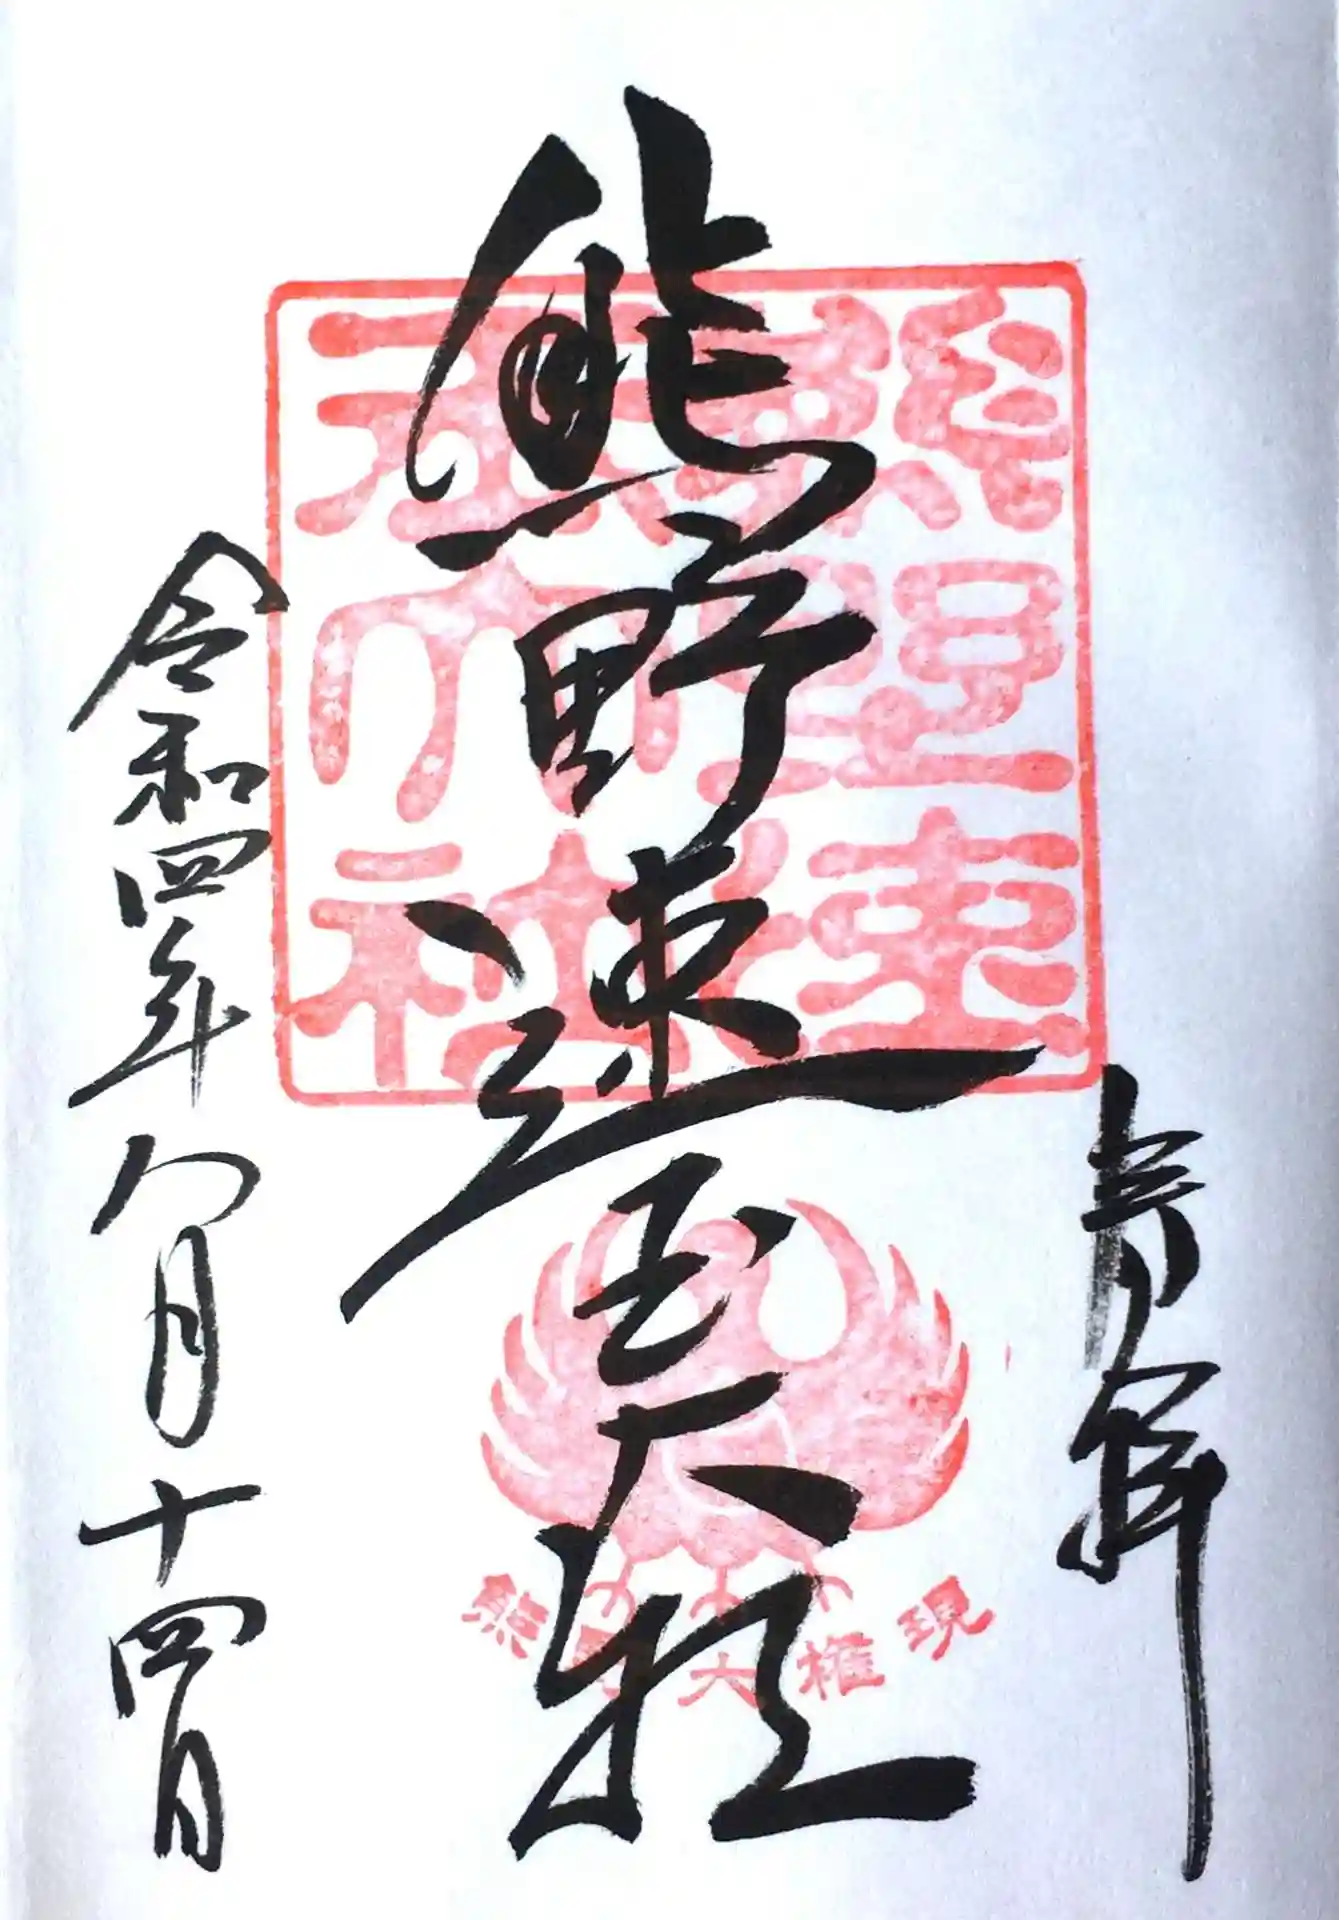 奉拝
熊野速玉大社
熊野速玉大社
熊野大権現
令和四年八月十四日